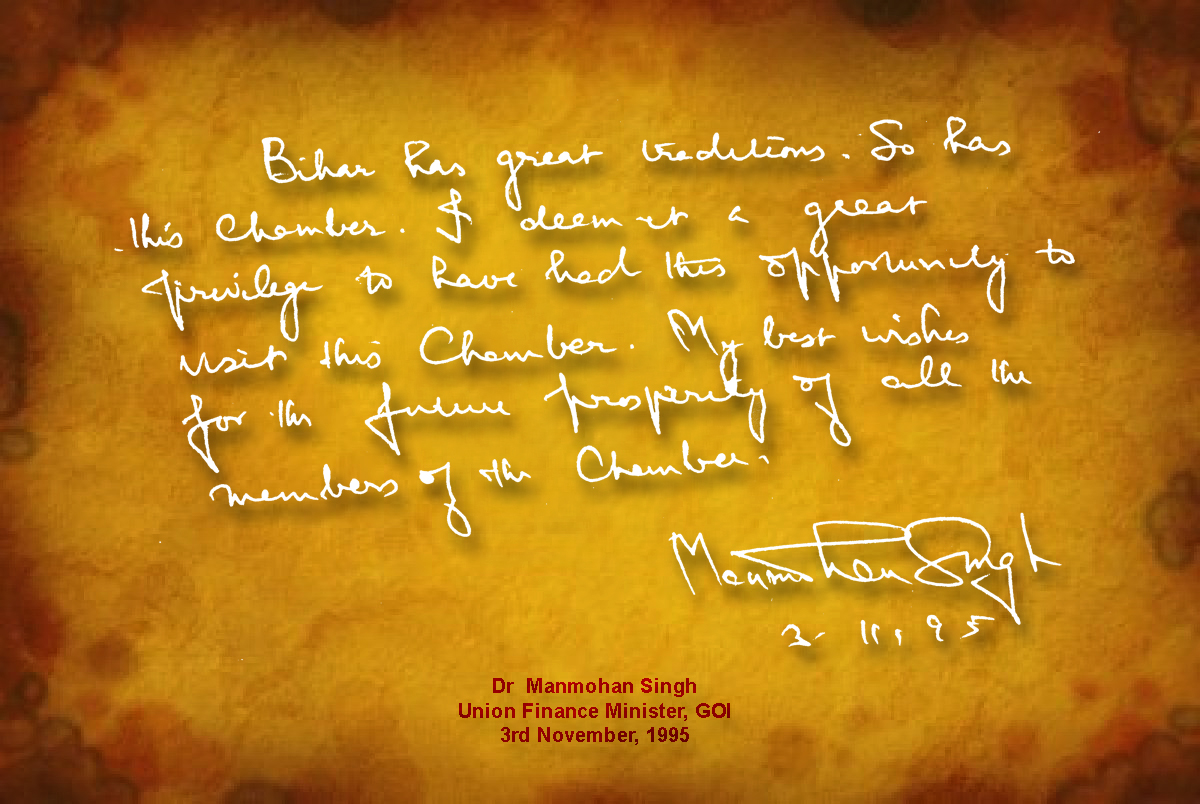 Bihar has great traditions. So has
this Chamber. I deem it a great
privilege to have had this opportunity to
visit this Chamber. My best wishes
for the future prosperity of all the
members of the Chamber.
Manmohan Singh
3.11.95
Dr Manmohan Singh
Union Finance Minister, GOI
3rd November, 1995